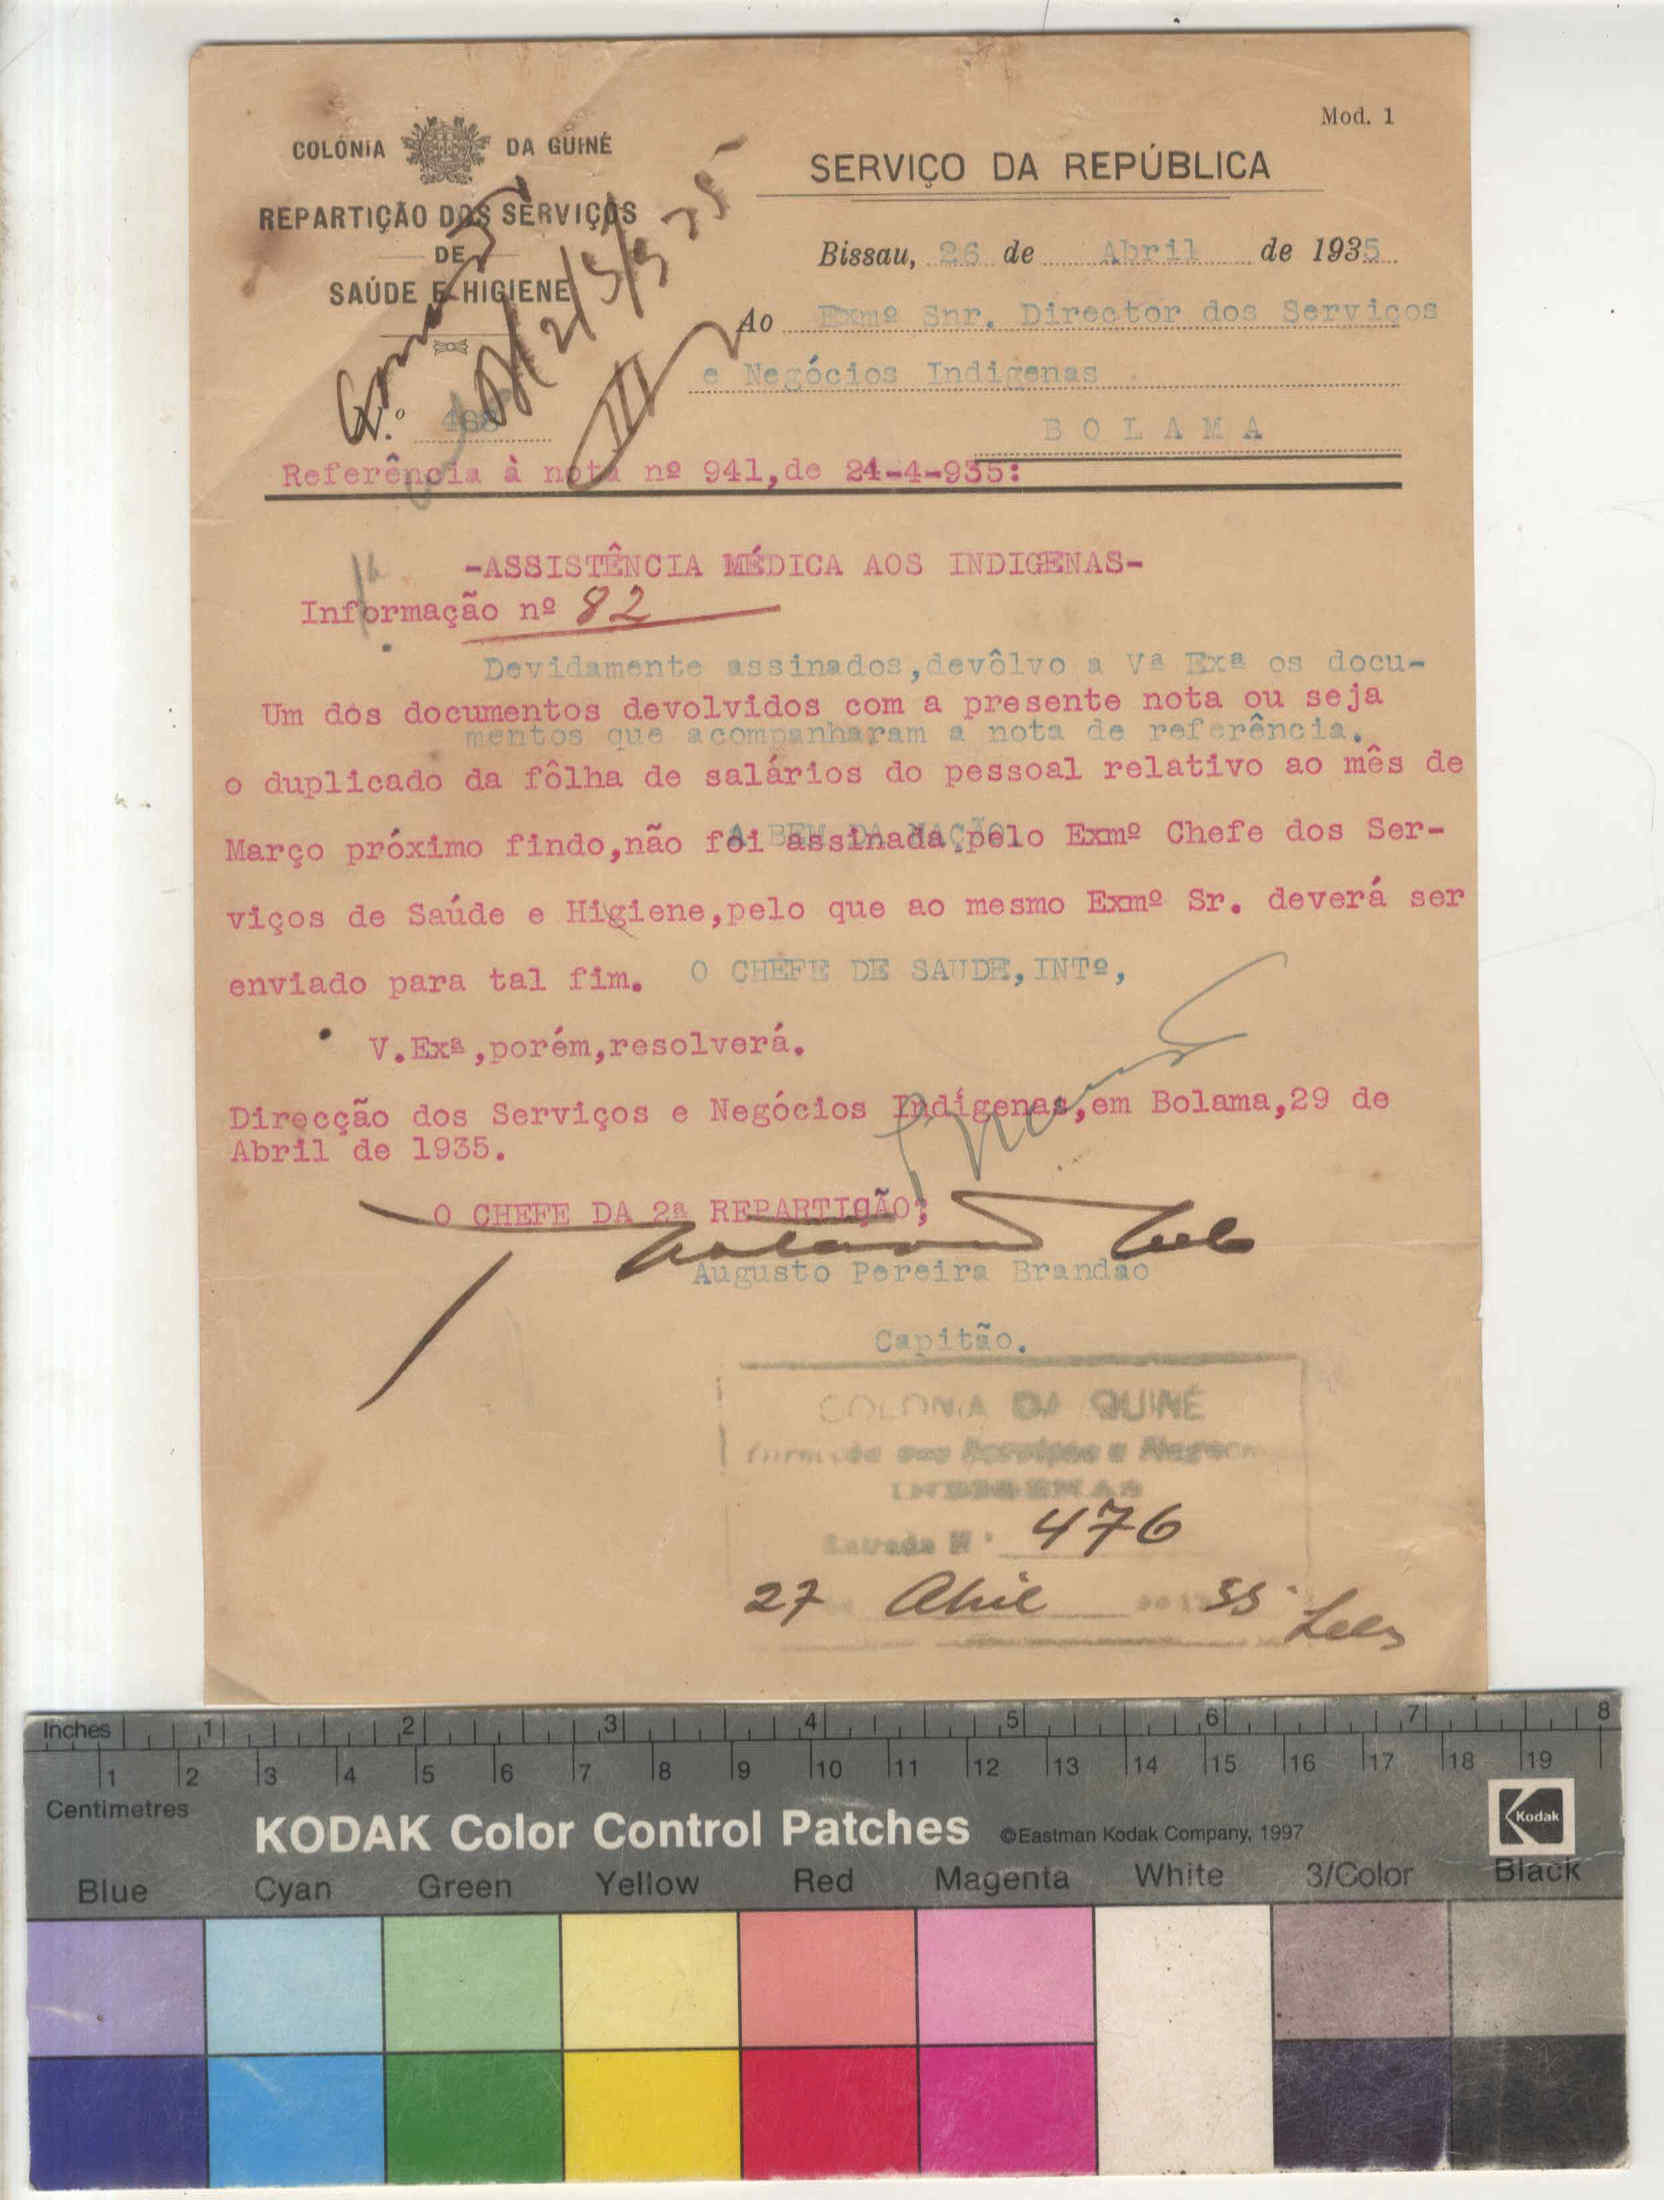 Mod. 1
COLÓNIA DA GUINÉ
REPARTIÇÃO DOS SERVIÇOS
DE
SAÚDE E HIGIENE
SERVIÇO DA REPÚBLICA
Bissau, 26 de Abril de 1935
Ao Exmº Snr. Director dos Serviços
e Negócios Indigenas
N.º
2/5/935
BOLAMA
Referência à nota nº 941,de 24-4-935:
-ASSISTÊNCIA MÉDICA AOS INDIGENAS-
Informação nº 82
Devidamente assinados,devôlvo a Vª Exª os docu-
Um dos documentos devolvidos com a presente nota ou seja
mentos que acompanharam a nota de referência.
o duplicado da fôlha de salários do pessoal relativo ao mês de
A BEM DA NAÇÃO
Março próximo findo,não foi assinada pelo Exmº Chefe dos Ser-
viços de Saúde e Higiene,pelo que ao mesmo Exmº Sr. deverá ser
enviado para tal fim.
O CHEFE DE SAUDE,INTº,
V.Exª,porém,resolverá.
Direcção dos Serviços e Negócios Indígenas,em Bolama,29 de
Abril de 1935.
O CHEFE DA 2ª REPARTIÇÃO;
Augusto Pereira Brandão
Capitão.
COLONIA DA GUINÉ
INDIGENAS
Entrada Nº 476
27 Abril 35
Inches 1 2 3 4 5 6 7 8
1 2 3 4 5 6 7 8 9 10 11 12 13 14 15 16 17 18 19
Centimetres
KODAK Color Control Patches ©Eastman Kodak Company, 1997
Kodak
Blue Cyan Green Yellow Red Magenta White 3/Color Black